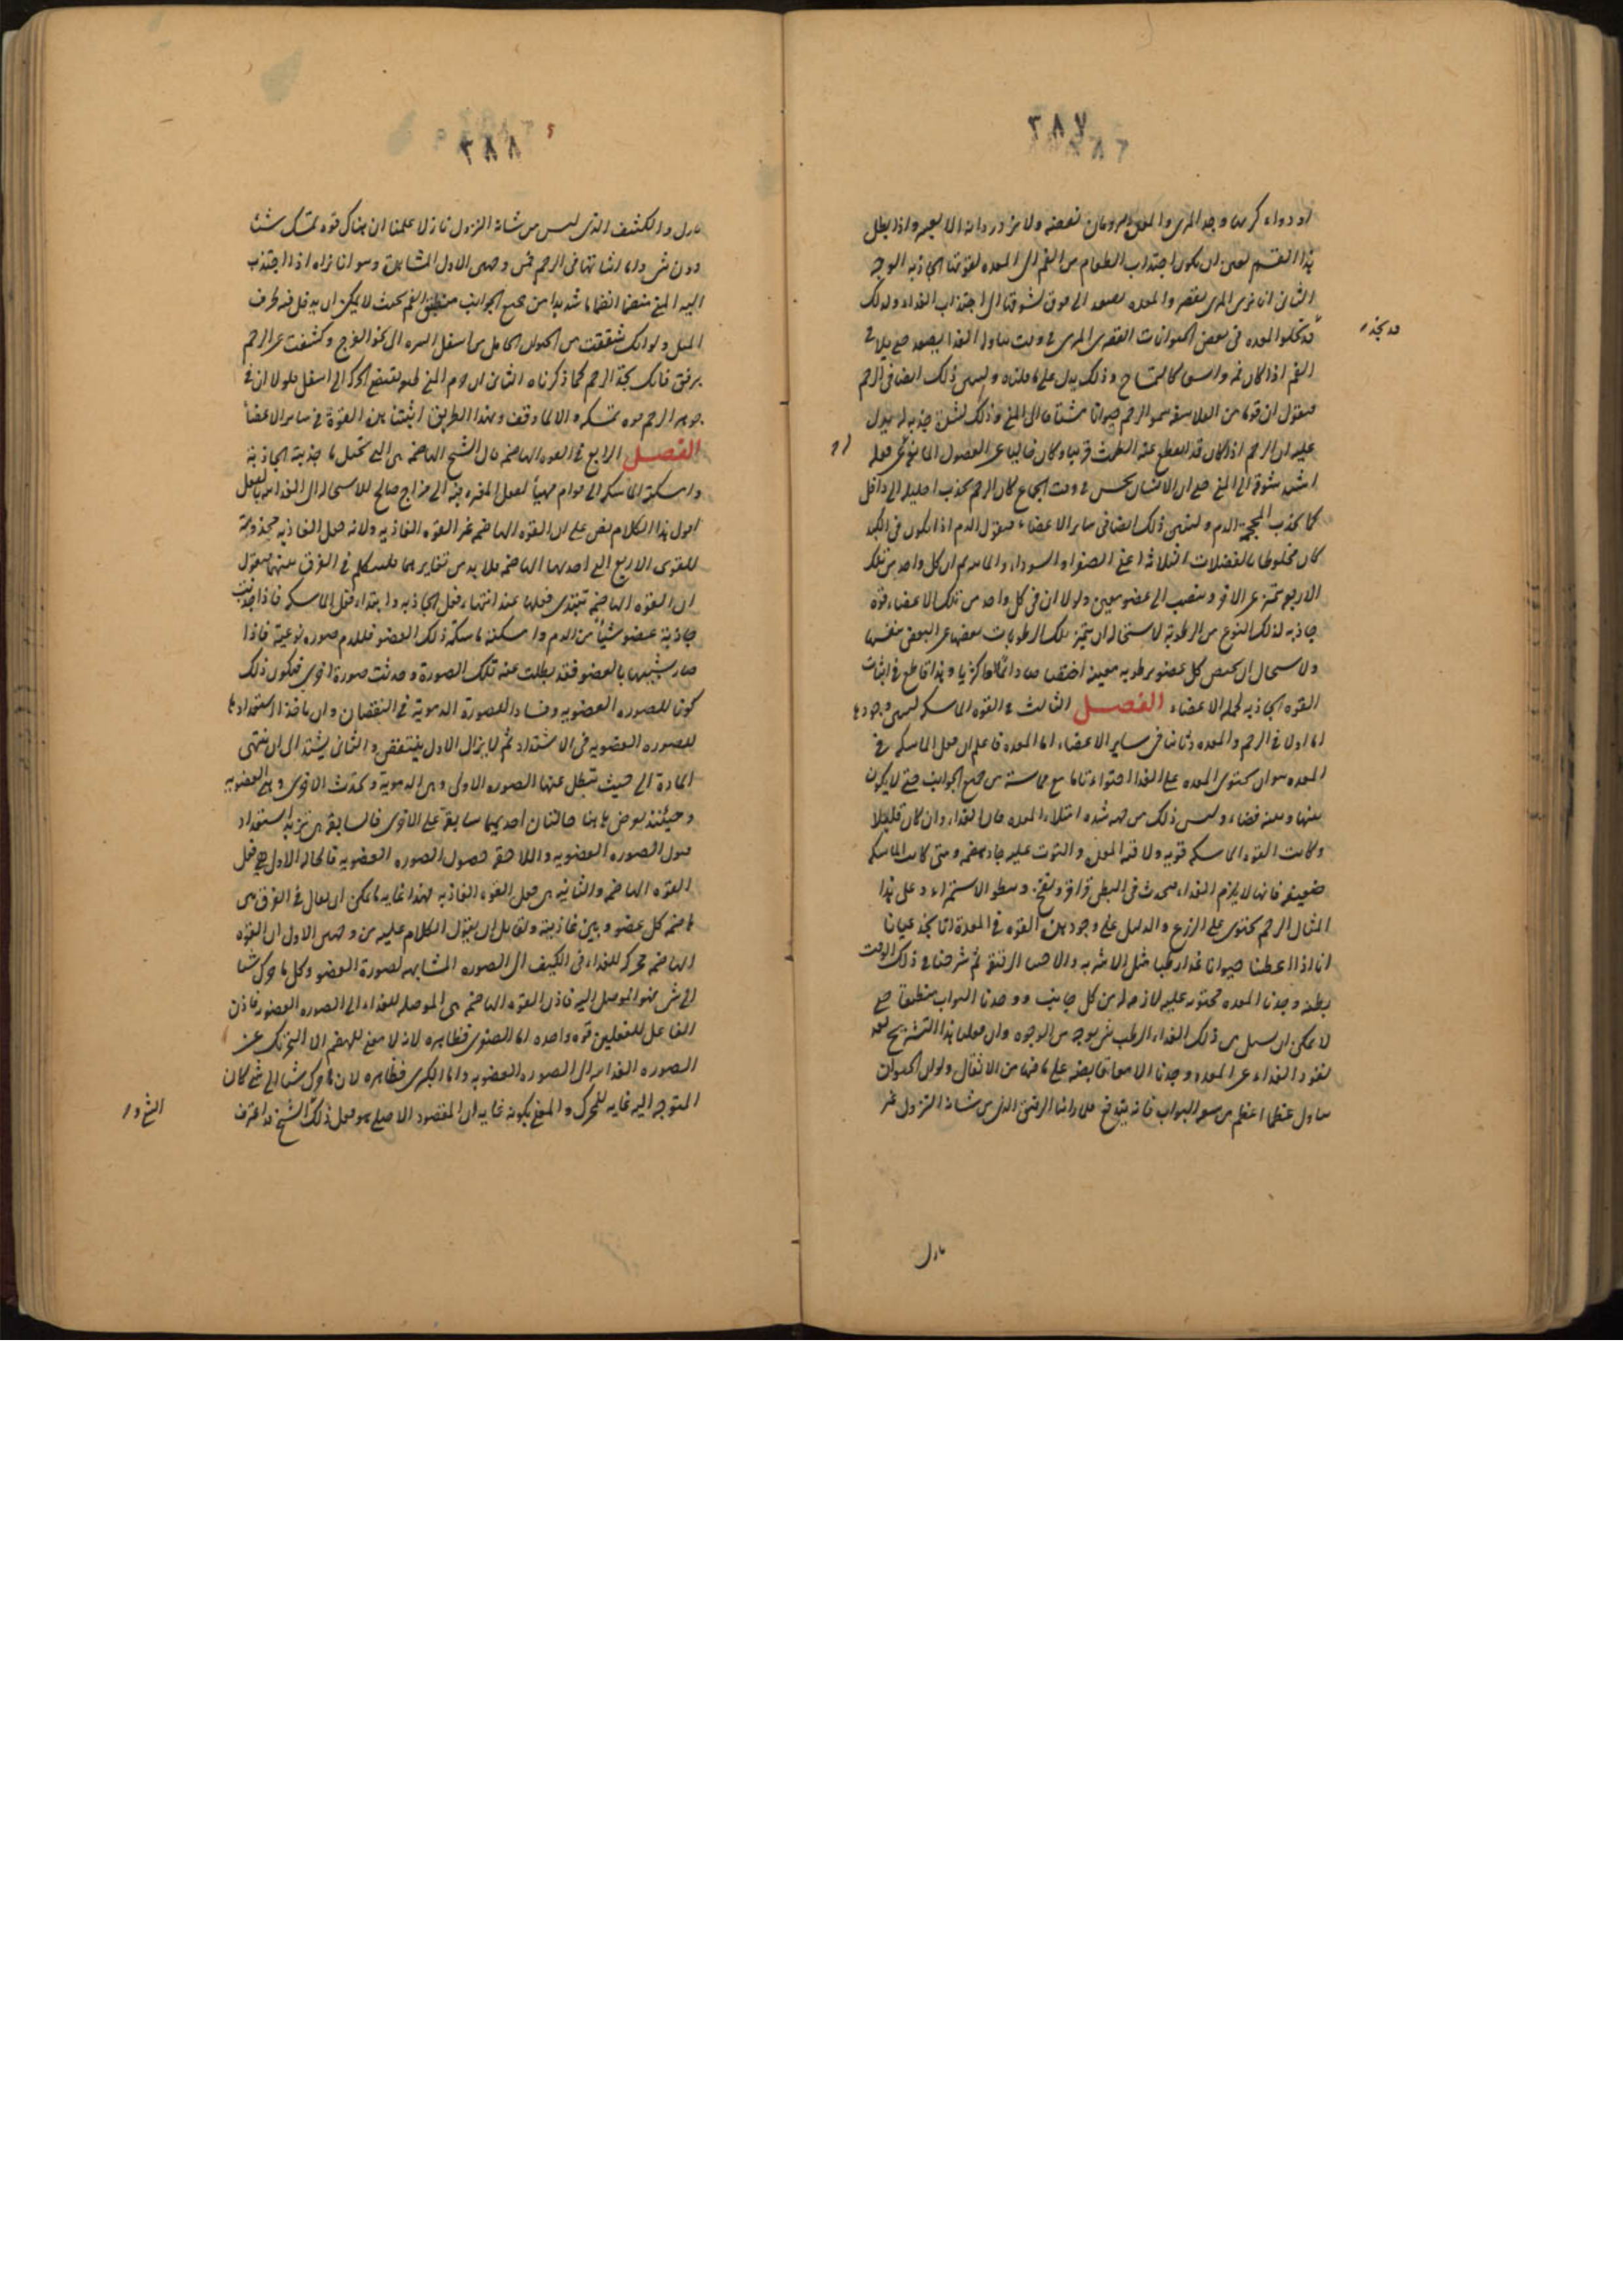 ٢٨٧
او دواء كريها وجد المرى والمعدة يرومان نفضه ولا يزدردانه الا بعسر واذا بطل
هذا القسم تعين ان يكون اجتذاب الطعام من الفم الى المعدة لقوتها الجاذبة الوجه
الثانى انا نرى المرى يقصر والمعدة تصعد الى فوق لشوقها الى اجتذاب الغذاء ولذلك
المعدة فى بعض الحيوانات القصير المرى فى وقت تناول الغذا يصعد حتى يلاقى
الفم اذا كان فمه واسعا كالتمساح وذلك يدل على ما قلناه وليبين ذلك ايضا فى الرحم
فنقول ان قوما من الفلاسفة سموا الرحم حيوانا مشتاقا الى المنى وذلك لشدة جذبه له يدل
عليه ان الرحم اذا كان قد انقطع عنه الطمث قريبا وكان خاليا عن الفضول المانعة عن فعله
اشتد شوقه الى المنى حتى ان الانسان يحس فى وقت الجماع كان الرحم يجذب احليله الى داخل
كما تجذب المحجمة الدم ولنبين ذلك ايضا فى سائر الاعضاء فنقول الدم اذا يكون فى الكبد
كان مخلوطا بالفضلات الثلاثة اعنى الصفراء والسوداء والمائية ثم ان كل واحد من تلك
الاربعة تتميز عن الاخر وينصب الى عضو معين ولولا ان فى كل واحد من تلك الاعضاء قوة
جاذبة لذلك النوع من الرطوبة لاستحال ان يتميز تلك الرطوبات بعضها عن البعض بنفسها
ولاستحال ان يختص كل عضو برطوبة معينة اختصاصا دائما او اكثريا وهذا قاطع فى اثبات
القوة الجاذبة لجملة الاعضاء الفصل الثالث فى القوة الماسكة ليبين وجودها
اما اولا فى الرحم والمعدة وثانيا فى ساير الاعضاء اما المعدة فاعلم ان فعل الماسكة فى
المعدة هو ان تحتوى المعدة على الغذا احتواء تاما مع مماسة من جميع الجوانب حتى لا يكون
بينها وبينه فضاء وليس ذلك من جهة شدة امتلاء المعدة فان الغذاء وان كان قليلا
وكانت القوة الماسكة قوية ولاقته المعدة والتوت عليه جاد هضمه ومتى كانت الماسكة
ضعيفة فانها لا يلزم الغذاء فيحدث فى البطن قراقر ونفخ وبطوء الاستمراء وعلى هذا
المثال الرحم يحتوى على الزرع والدليل على وجود هذه القوة فى المعدة انا نجد عيانا
انا اذا اعطينا حيوانا غذاء رطبا مثل الاشربة والاحساء الرقيقة ثم شرحنا فى ذلك الوقت
بطنه وجدنا المعدة محتوية عليه لازمة له من كل جانب ووجدنا البواب منطبقا حتى
لا يمكن ان يسيل من ذلك الغذاء الرطب شى بوجه من الوجوه وان فعلنا هذا التشريح بعد
نفوذ الغذاء عن المعدة وجدنا الامعاء قابضة على ما فيها من الاثقال ولو ان الحيوان
تناول عظما اعظم من سعة البواب فانه يندفع فلما رأينا الرقيق الذى من شانه النزول غير
نازل
٢٨٨
نازل والكثيف الذى ليس من شانه النزول نازلا علمنا ان هناك قوة تمسك شيئا
دون شى واما اثباتها فى الرحم فمن وجهين الاول المشاهدة وهو انا نراه اذا اجتذب
اليه المنى منضما انضماما شديدا من جميع الجوانب منطبق الفم بحيث لا يمكن ان يدخل فيه طرف
الميل ولو انك شققت من الحيوان الحامل من اسفل السرة الى نحو الفرج وكشفت عن الرحم
برفق فانك تجد الرحم كما ذكرناه الثانى ان جرم المنى ثقيل يقتضى الحركة الى اسفل فلولا ان فى
جوهر الرحم قوة تمسكه والا لما وقف وبهذا الطريق اثبتنا هذه القوة فى ساير الاعضأ
الفصل الرابع فى القوة الهاضمة قال الشيخ الهاضمة هى التى تحيل ما جذبته الجاذبة
وامسكته الماسكة الى قوام مهيأ لفعل المغيرة فيه الى مزاج صالح للاستحالة الى الغذائية بالفعل
اقول هذا الكلام نص على ان القوة الهاضمة غير القوة الغاذية ولانه جعل الغاذية مخدومة
للقوى الاربع التى احدها الهاضمة فلا بد من تغايرهما فلنتكلم فى الفرق بينهما فنقول
ان القوة الهاضمة تبتدى فعلها عند انتهاء فعل الجاذبة وابتداء فعل الماسكة فاذا جذبت
جاذبة عضو شيئا من الدم وامسكته ماسكة ذلك العضو فللدم صورة نوعية فاذا
صار شبيها بالعضو فقد بطلت عنه تلك الصورة وحدثت صورة اخرى فيكون ذلك
كونا للصورة العضوية وفسادا للصورة الدموية فى النقصان وان ياخذ استعدادها
للصورة العضوية فى الاشتداد ثم لا يزال الاول ينتقص والثانى يشتد الى ان ينتهى
المادة الى حيث تبطل عنها الصورة الاولى وهى الدموية وتحدث الاخرى وهى العضوية
وحينئذ يعرض هاهنا حالتان احديهما سابقة على الاخرى فالسابقة هى تزيد استعداد
قبول الصورة العضوية واللاحقة حصول الصورة العضوية فالحالة الاولى هى فعل
القوة الهاضمة والثانية هى فعل القوة الغاذية فهذا غاية ما يمكن ان يقال فى الفرق بين
هاضمة كل عضو وبين غاذيته ولقايل ان يقول الكلام عليه من وجهين الاول ان القوة
الهاضمة محركة للغذاء فى الكيف الى الصورة المشابهة لصورة العضو وكل ما حرك شيئا
الى شى فهو الموصل اليه فاذن القوة الهاضمة هى الموصلة للغذاء الى الصورة العضوية فاذن
الفاعل للفعلين قوة واحدة اما الصغرى فظاهرة لانه لا معنى للهضم الا التحريك عن
الصورة الغذائية الى الصورة العضوية واما الكبرى فظاهرة لان ما حرك شيئا الى شى كان
المتوجه اليه غاية للمحرك والمعنى بكونه غاية ان المقصود الاصلى هو فعل ذلك الشيخ قد اعترف